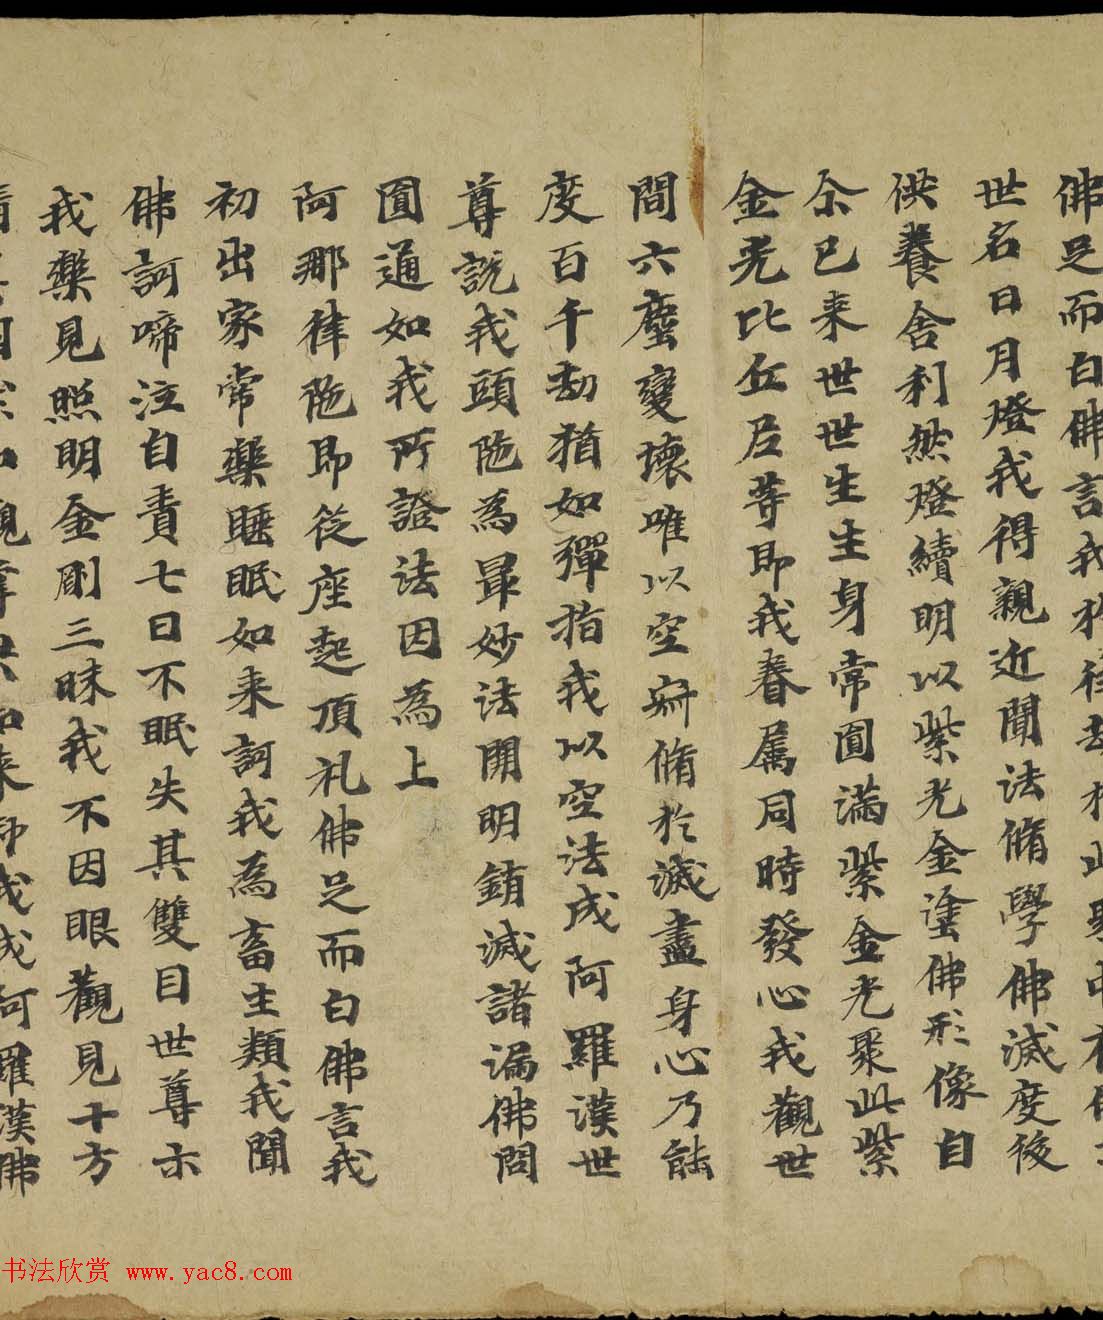 佛足而白佛言我於往劫於此界中有佛
世名日月燈我得親近聞法脩學佛滅度後
供養舍利然燈續明以紫光金塗佛形像自
尒已来世世生生身常圓滿紫金光聚此紫
金光比丘尼等即我眷属同時發心我觀世
間六塵變壞唯以空寂脩於滅盡身心乃能
度百千劫猶如彈指我以空法成阿羅漢世
尊說我頭陁為最妙法開明銷滅諸漏佛問
圓通如我所證法因為上
阿那律陁即從座起頂礼佛足而白佛言我
初出家常樂睡眠如来訶我為畜生類我聞
佛訶啼泣自責七日不眠失其雙目世尊示
我樂見照明金剛三昧我不因眼觀見十方
精真洞然如觀掌果如来印我成阿羅漢佛
书法欣赏 www.yac8.com